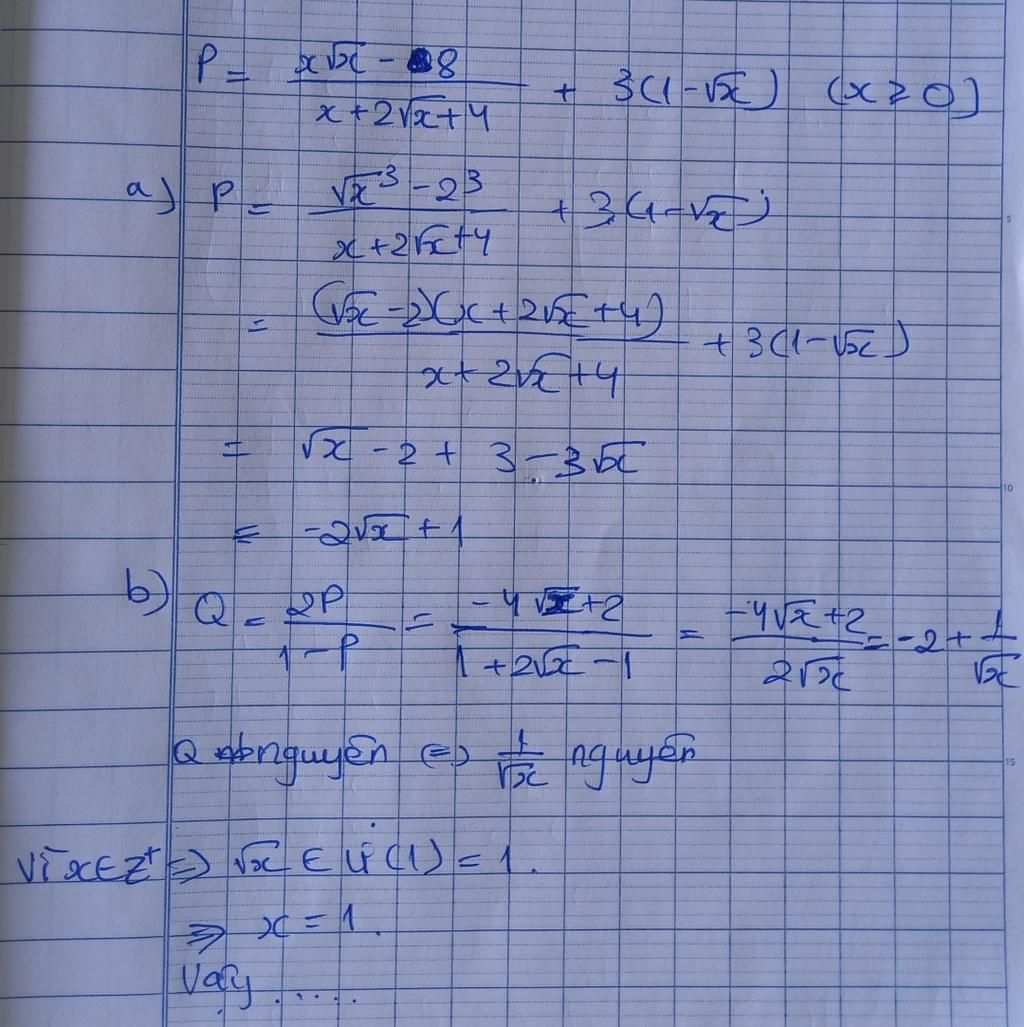 P = (x√x - 8)/(x + 2√x + 4) + 3(1 - √x) (x ≥ 0)
a) P = (√x³ - 2³)/(x + 2√x + 4) + 3(1 - √x)
= (√x - 2)(x + 2√x + 4)/(x + 2√x + 4) + 3(1 - √x)
= √x - 2 + 3 - 3√x
= -2√x + 1
b) Q = 2P/(1 - P) = (-4√x + 2)/(1 + 2√x - 1) = (-4√x + 2)/(2√x) = -2 + 1/√x
Q nguyên ⇔ 1/√x nguyên
Vì x ∈ Z⁺ ⇒ √x ∈ Ư(1) = 1.
⇒ x = 1.
Vậy .....
5
10
15